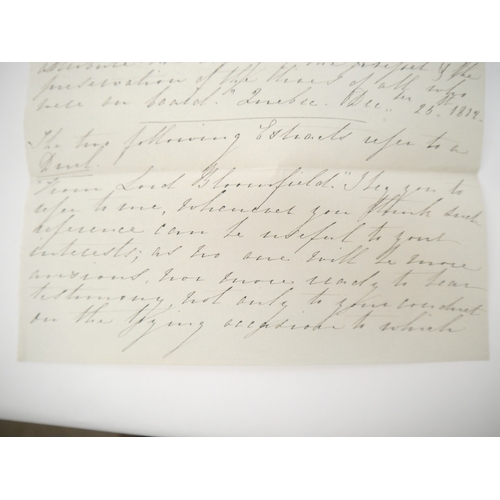 preservation of the lives of all who
were on board." Quebec. Dec. 25th 1812.
The two following Extracts refer to a
Duel.
"From Lord Bloomfield." I beg you to
refer to me, whenever you think such
reference can be useful to your
interests; as no one will be more
anxious, nor more ready to bear
testimony, not only to your conduct
on the trying occasion to which